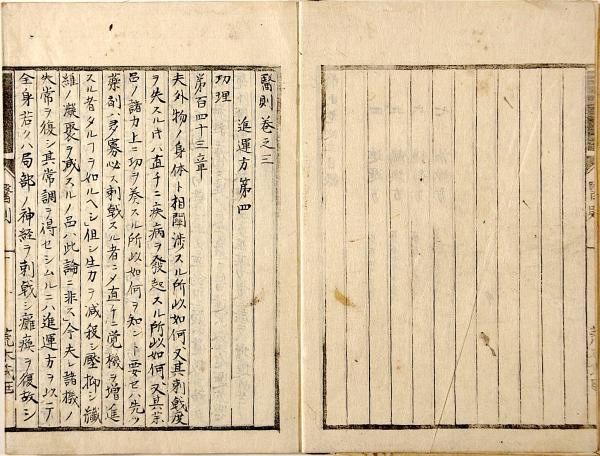 醫則卷之三
進運方第四
功理
第百四十三章
夫外物ノ身体ト相關渉スル所以如何又其刺戟度
ヲ失スル片ハ直チニ疾病ヲ發起スル所以如何又其藥
品ノ諸力上ニ功ヲ奏スル所以如何ヲ知ント要セハ先ツ
藥劑ハ多寡必ス刺戟スル者ニメ直チニ覚機ヲ増進
スル者タルヿヲ知ルヘシ但シ生力ヲ減殺シ壓抑シ纖
維ノ凝聚ヲ減スルノ品ハ此論ニ非ス今夫レ諸機ノ
失常ヲ復シ其常調ヲ得セシムルニハ進運方ヲ以テ
全身若クハ局部ノ神経ヲ刺戟シ癱瘓ヲ復故シ
醫則